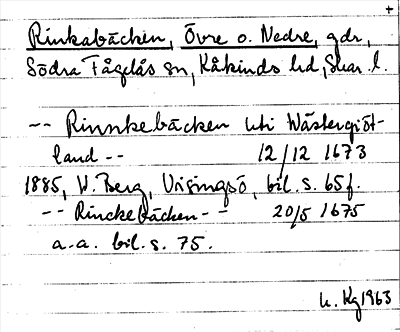 +
Rinkabäcken, Övre o. Nedre, gdr,
Södra Fågelås sn, Kåkinds hd, Skar. l.
-- Rinnkebäcken uti Wästergiöt-
land -- 12/12 1673
1885, W. Berg, Visingsö, bil. s. 65 f.
-- Rinckebäcken -- 20/5 1675
a.a. bil. s. 75.
1963